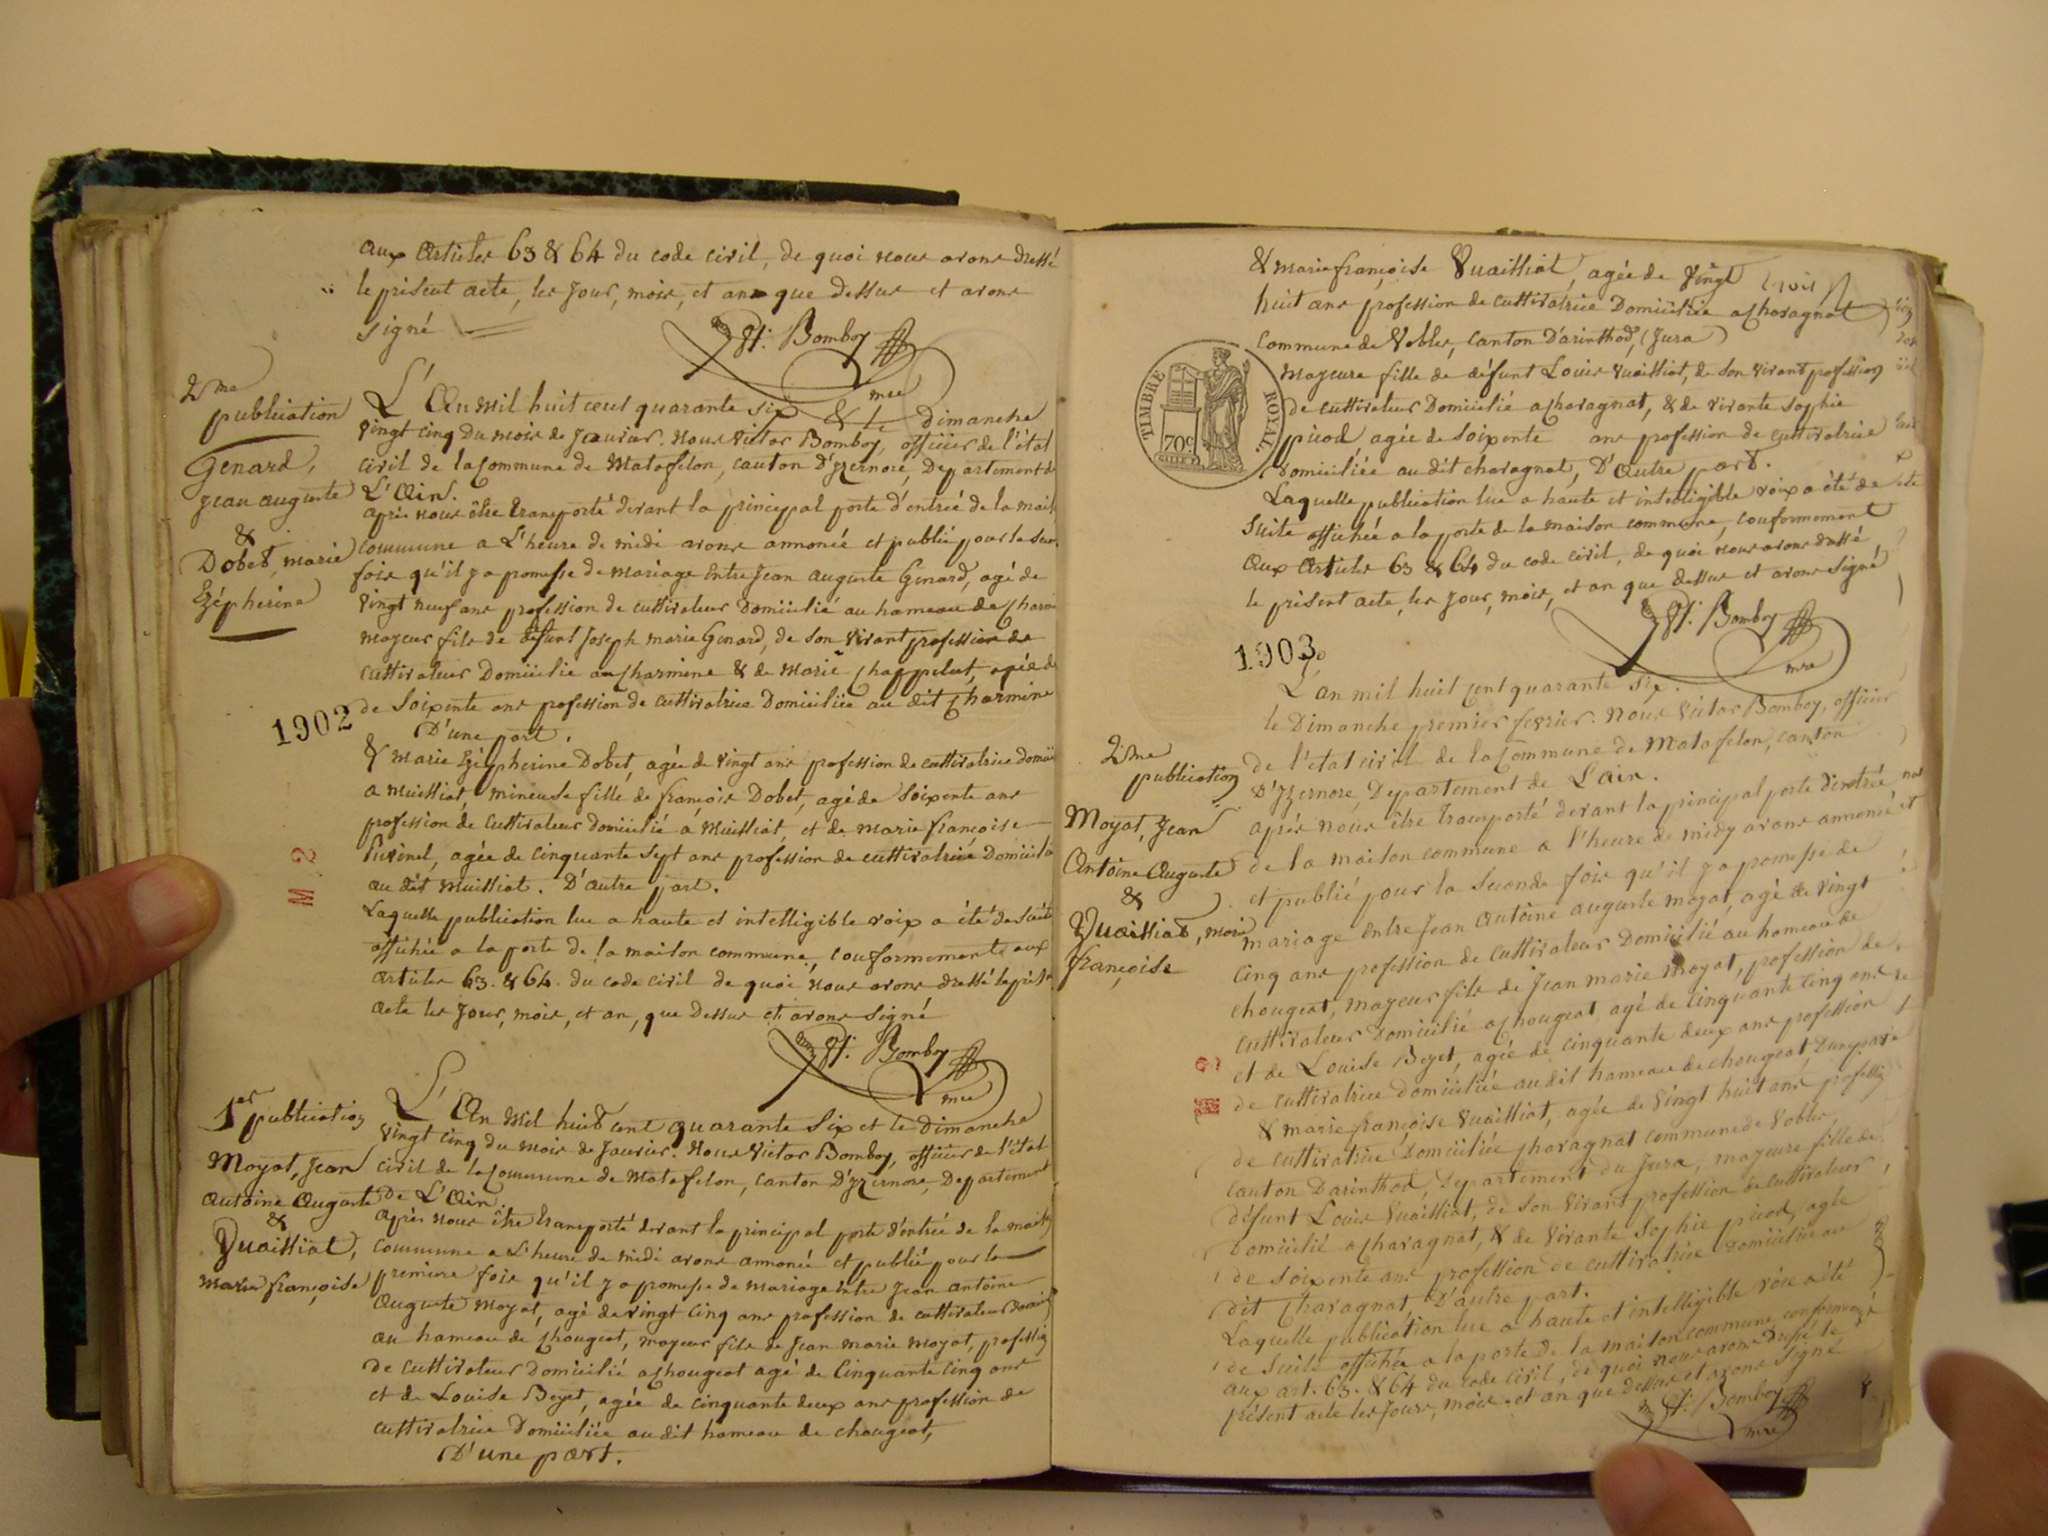 aux Articles 63 & 64 du code civil, de quoi nous avons dressé
le présent acte, les Jour, mois, et an que dessus et avons
signé
Vt. Bomboy
mre
2me
publication
Genard,
jean auguste
&
Dobet, marie
Zépherine
L'An mil huit cent quarante six & le dimanche
vingt cinq du mois de Janvier. Nous Victor Bomboy, officier de l'état
civil de la Commune de Matafelon, canton D'Yzernore, Département de
L'Ain.
après nous être transporté devant la principal porte d'entrée de la maison
commune a L'heure de midi avons annoncé et publié pour la
fois qu'il y a promesse de mariage Entre Jean Auguste Genard, agé de
vingt neuf ans profession de cultivateur Domicilié au hameau de
mayeur fils de défunt Joseph marie Genard, de son vivant profession de
cultivateur Domicilié au Charmine & de Marie Chappelut, agée de
de Soixente ans profession de cultivatrice Domiciliée au dit Charmine
D'une part.
1902
& Marie Zépherine Dobet, agée de vingt ans profession de cultivatrice
a Muissiat, mineuse fille de françois Dobet, agé de Soixente ans
profession de Cultivateur domicilié a Muissiat et de marie françoise
agée de Cinquante Sept ans profession de cultivatrice
au dit Muissiat. D'autre part.
M. 2
Laquelle publication lue a haute et intelligible voix a été de suite
affichée a la porte de la maison commune, conformement aux
articles 63. & 64. du code civil de quoi nous avons dressé le
acte les Jour, mois, et an, que Dessus et avons Signé
Vt. Bomboy
mre
1er publication
Moyat, Jean
Antoine Auguste
&
Vuaissiat,
Marie françoise
L'An Mil huit cent quarante Six et le Dimanche
vingt cinq du mois de Janvier. Nous Victor Bomboy, officier de l'état
civil de la Commune de Matafelon, Canton D'Yzernore, Département
de L'Ain.
Après nous être transporté devant la principal porte d'entrée de la maison
commune a L'heure de midi avons annoncé et publié pour la
première fois qu'il y a promesse de mariage entre Jean antoine
Auguste Moyat, agé de vingt Cinq ans profession de cultivateur
au hameau de Chougeat, mayeur fils de Jean marie Moyat, profession
de cultivateur Domicilié a Chougeat agé de Cinquante Cinq ans
et de Louise Beyet, agée de cinquante deux ans profession de
cultivatrice Domiciliée audit hameau de chougeat,
D'une part.
& marie françoise Vuaissiat, agée de Vingt
huit ans profession de cultivatrice Domiciliée a Charagnat
Commune de Vobles, Canton D'arinthod, (Jura)
TIMBRE ROYAL
70c
mayeure fille de défunt Louis Vuaissiat, de Son Vivant profession
de cultivateur Domicilié a Charagnat, & de vivante Sophie
picod agée de Soixente ans profession de cultivatrice
Domiciliée au dit charagnat, D'Autre part.
Laquelle publication lue a haute et intelligible voix a été de
Suite affichée a la porte de la maison commune, conformement
Aux Articles 63 & 64 du code civil, de quoi nous avons dressé
le présent acte, les Jour, mois, et an que dessus et avons Signé
Vt. Bomboy
mre
1903
2me
publication
Moyat, Jean
Antoine Auguste
&
Vuaissiat, marie
françoise
L'an mil huit Cent quarante Six.
le Dimanche premier fevrier. Nous Victor Bomboy, officier
de l'état civil de la Commune de Matafelon, canton
D'Yzernore, Département de L'ain.
après nous être transporté devant la principal porte d'entrée
de la maison commune a l'heure de midy avons annoncé
et publié pour la Seconde fois qu'il y a promesse de
mariage entre Jean Antoine auguste moyat, agé de vingt
Cinq ans profession de cultivateur Domicilié au hameau de
Chougeat, mayeur fils de Jean marie moyat, profession de
cultivateur Domicilié a chougeat agé de Cinquante Cinq ans
et de Louise Beyet, agée de cinquante deux ans profession
de cultivatrice domiciliée audit hameau de chougeat, D'une part
& marie françoise Vuaissiat, agée de Vingt huit ans profession
de cultivatrice Domiciliée Charagnat commune de Vobles,
Canton Darinthod, Département du Jura, mayeure fille de
défunt Louis Vuaissiat, de Son Vivant profession de cultivateur
Domicilié a Charagnat, & de Vivante Sophie picod, agée
de Soixente ans profession de cultivatrice Domiciliée au
dit Charagnat, D'autre part.
Laquelle publication lue a haute et intelligible voix a été
de Suite affichée a la porte de la maison commune, conformement
aux art. 63. & 64 du code civil, de quoi nous avons Dressé le
présent acte les Jours, mois, et an que Dessus et avons Signé
Vt. Bomboy
mre